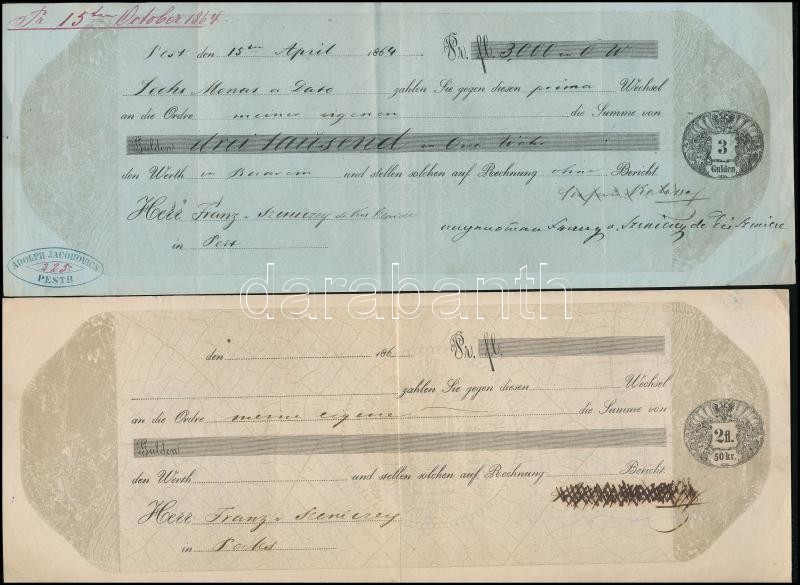 Pr 15ten October 1864.
Pest den 15ten April 1864 Pr. fl. 3,000 in O W
Sechs Monat a Dato zahlen Sie gegen diesen prima Wechsel
an die Ordre meiner eigenen die Summe von
Gulden drei tausend in Oest Währ
3
Gulden
den Werth in Baarem und stellen solchen auf Rechnung ohne Bericht.
Herr Franz v Szeniczey de Kis
angenommen Franz v. Szeniczey de
in Pest
ADOLPH JACOBOVICS
225.
PESTH
darabanth
den 186 Pr. fl.
zahlen Sie gegen diesen Wechsel
an die Ordre meine eigene die Summe von
2fl.
50 kr.
Gulden
den Werth und stellen solchen auf Rechnung Bericht.
Herr Franz v Szeniczey
in Paks